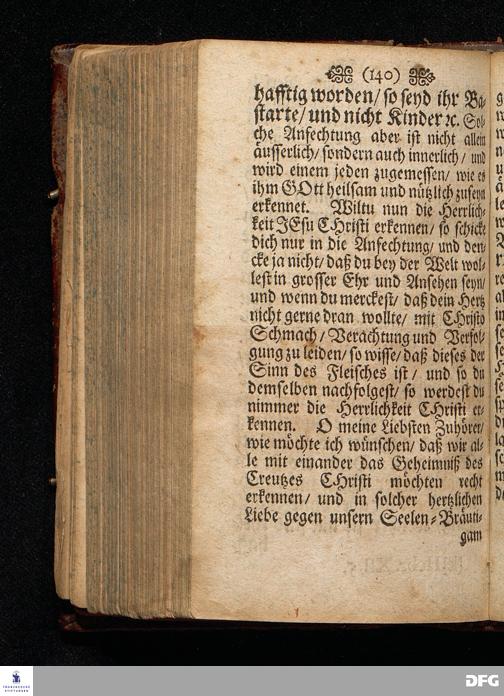 (140)
hafftig worden/ so seyd ihr Ba-
starte/ und nicht Kinder ꝛc. Sol-
che Anfechtung aber ist nicht allein
äusserlich/ sondern auch innerlich/ und
wird einem jeden zugemessen/ wie es
ihm GOtt heilsam und nützlich zuseyn
erkennet. Wiltu nun die Herrlich-
keit JEsu CHristi erkennen/ so schicke
dich nur in die Anfechtung/ und den-
cke ja nicht/ daß du bey der Welt wol-
lest in grosser Ehr und Ansehen seyn/
und wenn du merckest/ daß dein Hertz
nicht gerne dran wollte/ mit CHristo
Schmach/ Verachtung und Verfol-
gung zu leiden/ so wisse/ daß dieses der
Sinn des Fleisches ist/ und so du
demselben nachfolgest/ so werdest du
nimmer die Herrlichkeit CHristi er-
kennen. O meine Liebsten Zuhörer/
wie möchte ich wünschen/ daß wir al-
le mit einander das Geheimniß des
Creutzes CHristi möchten recht
erkennen/ und in solcher hertzlichen
Liebe gegen unsern Seelen-Bräuti-
gam
FRANCKESCHE
STIFTUNGEN
DFG